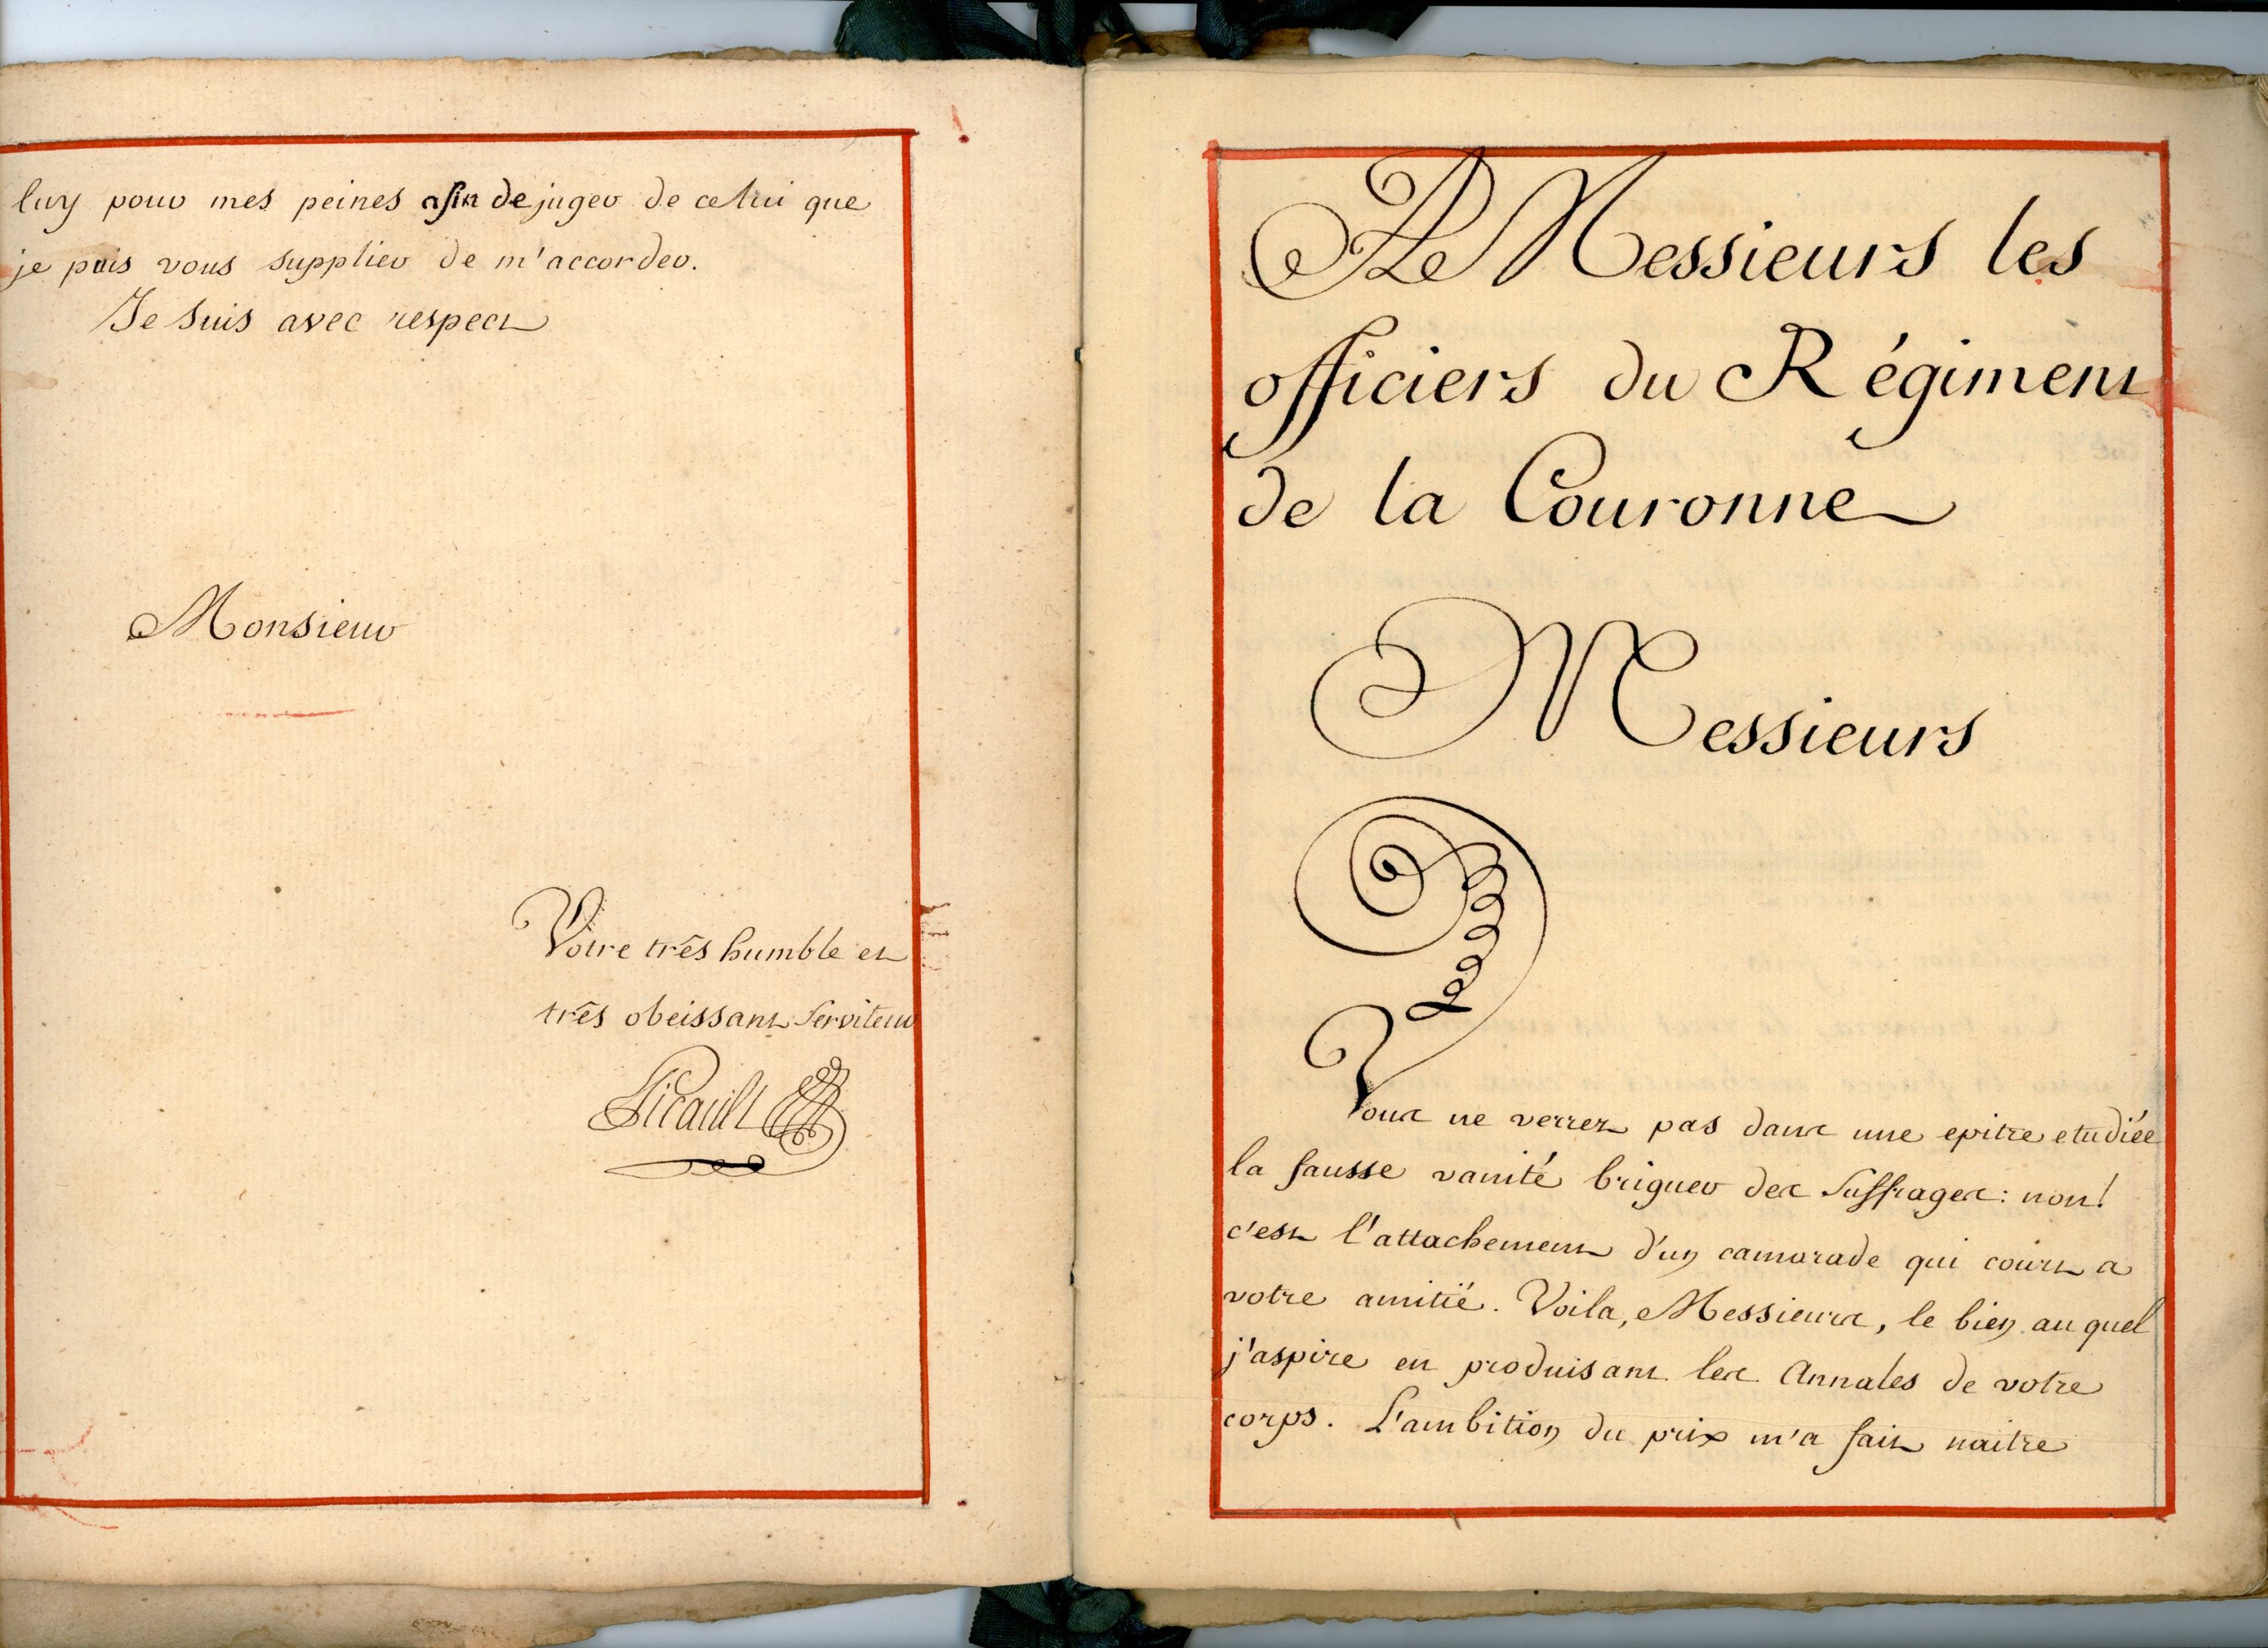 luy pour mes peines afin de juger de celui que
je puis vous supplier de m'accorder.
Je suis avec respect
Monsieur
Votre très humble et
très obeissant Serviteur
A Messieurs les
officiers du Régiment
de la Couronne
Messieurs
Vous ne verrez pas dans une epitre etudiée
la fausse vanité briguer des Suffrages : non!
c'est l'attachement d'un camarade qui court a
votre amitié. Voila, Messieurs, le bien au quel
j'aspire en produisant les Annales de votre
corps. L'ambition du prix m'a fait naitre